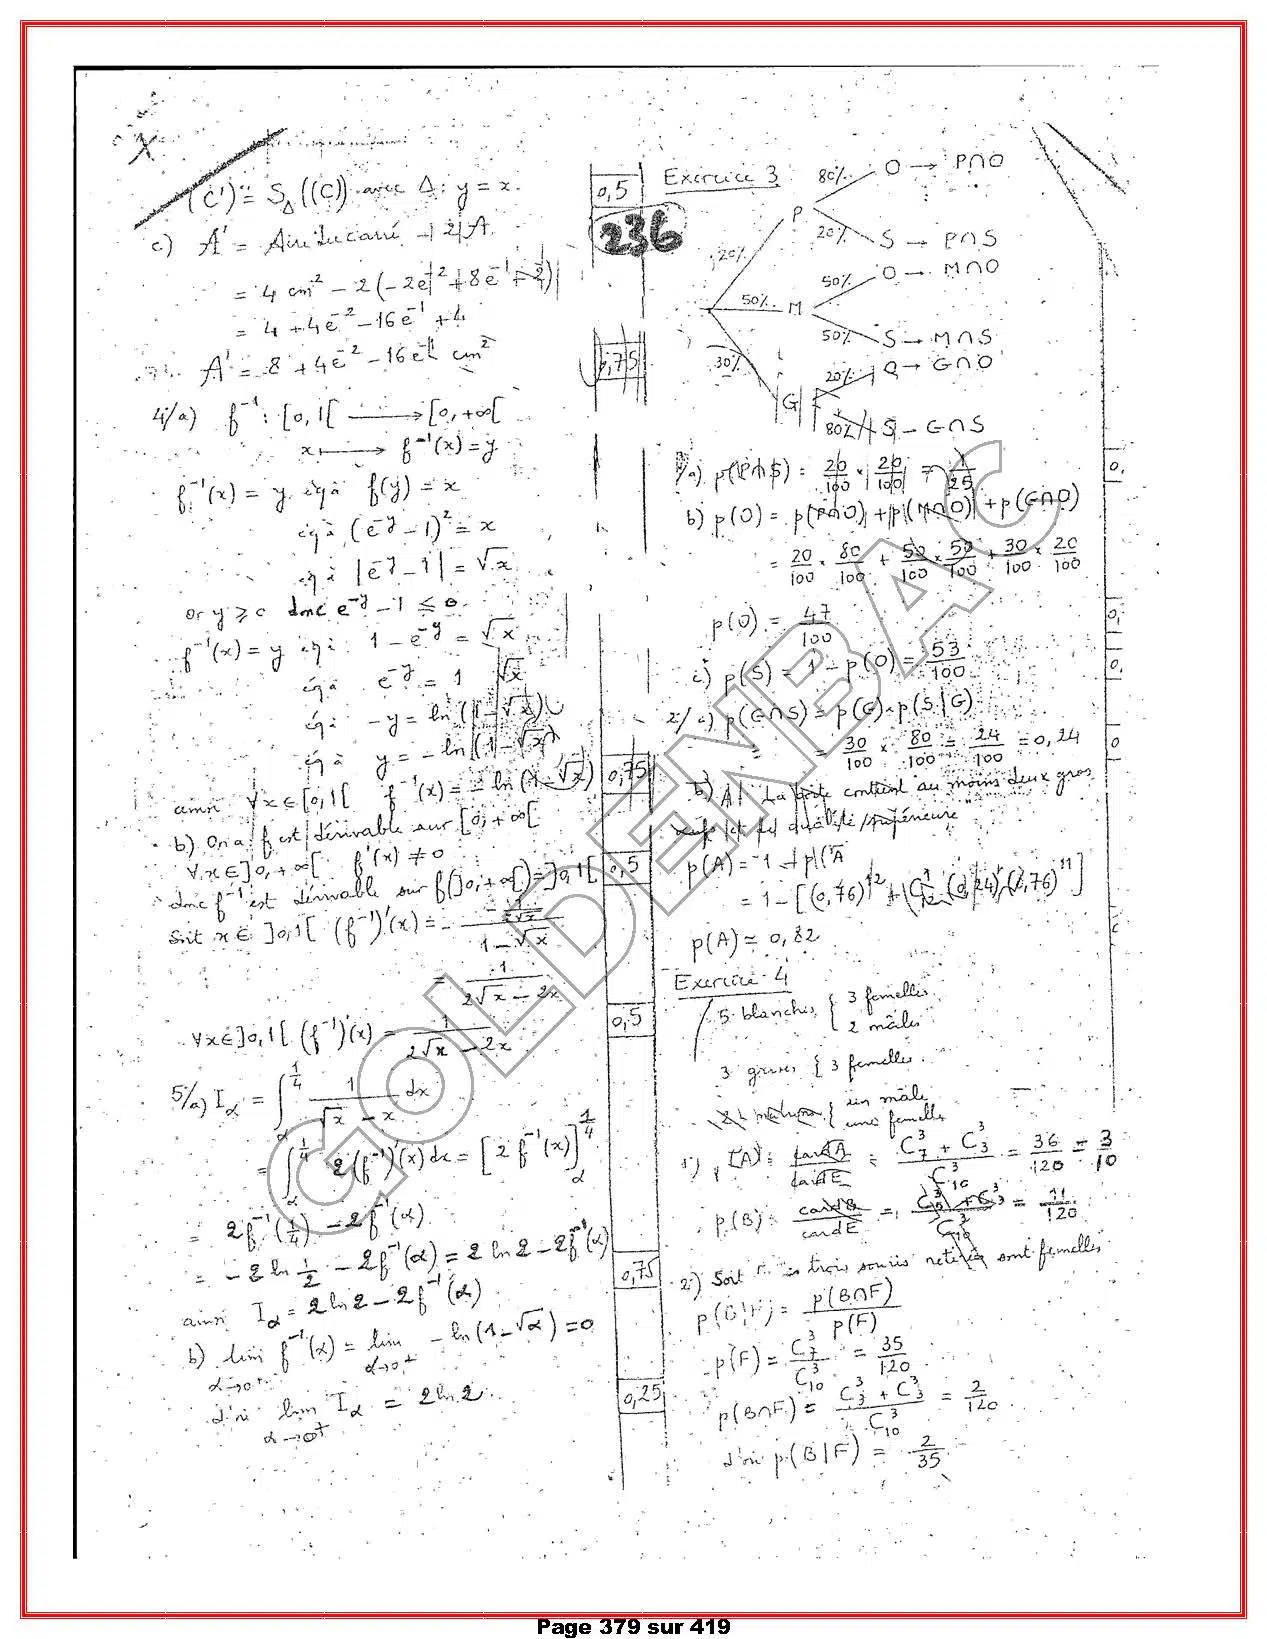 X
(C') = S_Δ((C)) avec Δ : y = x.
0,5
236
c) A' = Aire du carré - 2A
= 4 cm² - 2(-2e⁻² + 8e⁻¹ - 4)
= 4 + 4e⁻² - 16e⁻¹ + 4
A' = 8 + 4e⁻² - 16e⁻¹ cm²
0,75
4/a) f⁻¹ : [0,1[ → [0,+∞[
x ↦ f⁻¹(x) = y
f⁻¹(x) = y éq à f(y) = x
éq à (e⁻ʸ - 1)² = x
éq à |e⁻ʸ - 1| = √x
or y ≥ 0 donc e⁻ʸ - 1 ≤ 0.
f⁻¹(x) = y éq à 1 - e⁻ʸ = √x
éq à e⁻ʸ = 1 √x
éq à -y = ln(1 - √x)
éq à y = -ln(1 - √x)
ainsi ∀x∈[0,1[ f⁻¹(x) = -ln(1-√x)
0,75
b) On a f est dérivable sur [0,+∞[
∀x∈]0,+∞[ f'(x) ≠ 0
donc f⁻¹ est dérivable sur f(]0,+∞[) = ]0,1[
0,5
Soit x ∈ ]0,1[ (f⁻¹)'(x) = - (-1/(2√x)) / (1 - √x)
= 1/(2√x - 2x)
∀x∈]0,1[ (f⁻¹)'(x) = 1/(2√x - 2x)
0,5
5/a) I_α = ∫_α^{1/4} 1/(√x - x) dx
= ∫_α^{1/4} 2(f⁻¹)'(x) dx = [2 f⁻¹(x)]_α^{1/4}
= 2f⁻¹(1/4) - 2f⁻¹(α)
= -2 ln 1/2 - 2f⁻¹(α) = 2 ln 2 - 2f⁻¹(α)
0,75
ainsi I_α = 2 ln 2 - 2f⁻¹(α)
b) lim_{α→0⁺} f⁻¹(α) = lim_{α→0⁺} -ln(1-√α) = 0
d'où lim_{α→0⁺} I_α = 2 ln 2.
0,25
Exercice 3
80% O → P∩O
P
20% 20% S → P∩S
50% O → M∩O
50% M
50% S → M∩S
30% 20% O → G∩O
G
80% S → G∩S
1/a) p(P∩S) = 20/100 × 20/100 = 1/25
0,
b) p(O) = p(P∩O) + p(M∩O) + p(G∩O)
= 20/100 × 80/100 + 50/100 × 50/100 + 30/100 × 20/100
p(O) = 47/100
0,
c) p(S) = 1 - p(O) = 53/100
0,
2/a) p(G∩S) = p(G) × p(S|G)
= 30/100 × 80/100 = 24/100 = 0,24
0
b) A : La boîte contient au moins deux gros
oeufs et de qualité supérieure
p(A) = 1 - p(Ā
= 1 - [(0,76)¹² + C¹₁₂ (0,24)¹ (0,76)¹¹]
p(A) ≈ 0,82
Exercice 4
5 blanches { 3 femelles
2 mâles
3 grises { 3 femelles
{ un mâle
une femelle
1) p(A) = cardA/cardE = (C³₇ + C³₃)/C³₁₀ = 36/120 = 3/10
p(B) = cardB/cardE = = 11/120
2) Soit trois souris retirés sont femelles
p(B|F) = p(B∩F)/p(F)
p(F) = C³₇/C³₁₀ = 35/120
p(B∩F) = (C³₃ + C³₃)/C³₁₀ = 2/120
d'où p(B|F) = 2/35
GOLDENBAC
Page 379 sur 419